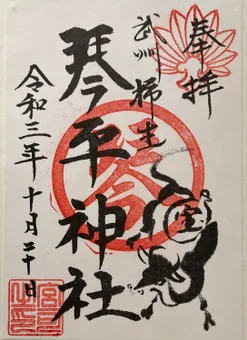 奉拝
武州柿生
琴平神社
令和三年十月二十日
金